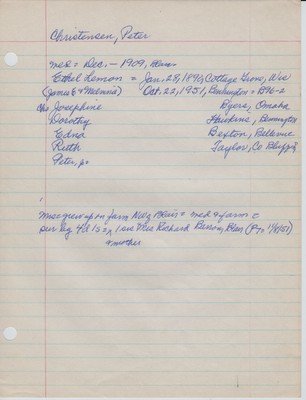 Christensen, Peter
med = Dec. - 1909, Blair
Ethel Lemon = Jan. 28, 1890, Cottage Grove, Wis
(James E & Melvina) Oct. 22, 1951, Bennington = B96-2
chs Josephine Byers, Omaha
Dorothy Hawkins, Bennington
Edna Bexton, Bellevue
Ruth Taylor, Co Bluffs
Peter, Jr
Mrs grew up on farm NW of Blair = med & farm =
sur by 4 d 1 s = 1 sis Mrs Richard Benson, Blair (P-T 11/8/51)
& mother